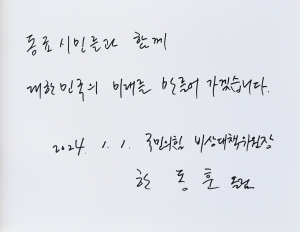 동료시민들과 함께
대한민국의 미래를 만들어 가겠습니다.
2024. 1. 1. 국민의힘 비상대책위원장
한 동 훈 올림